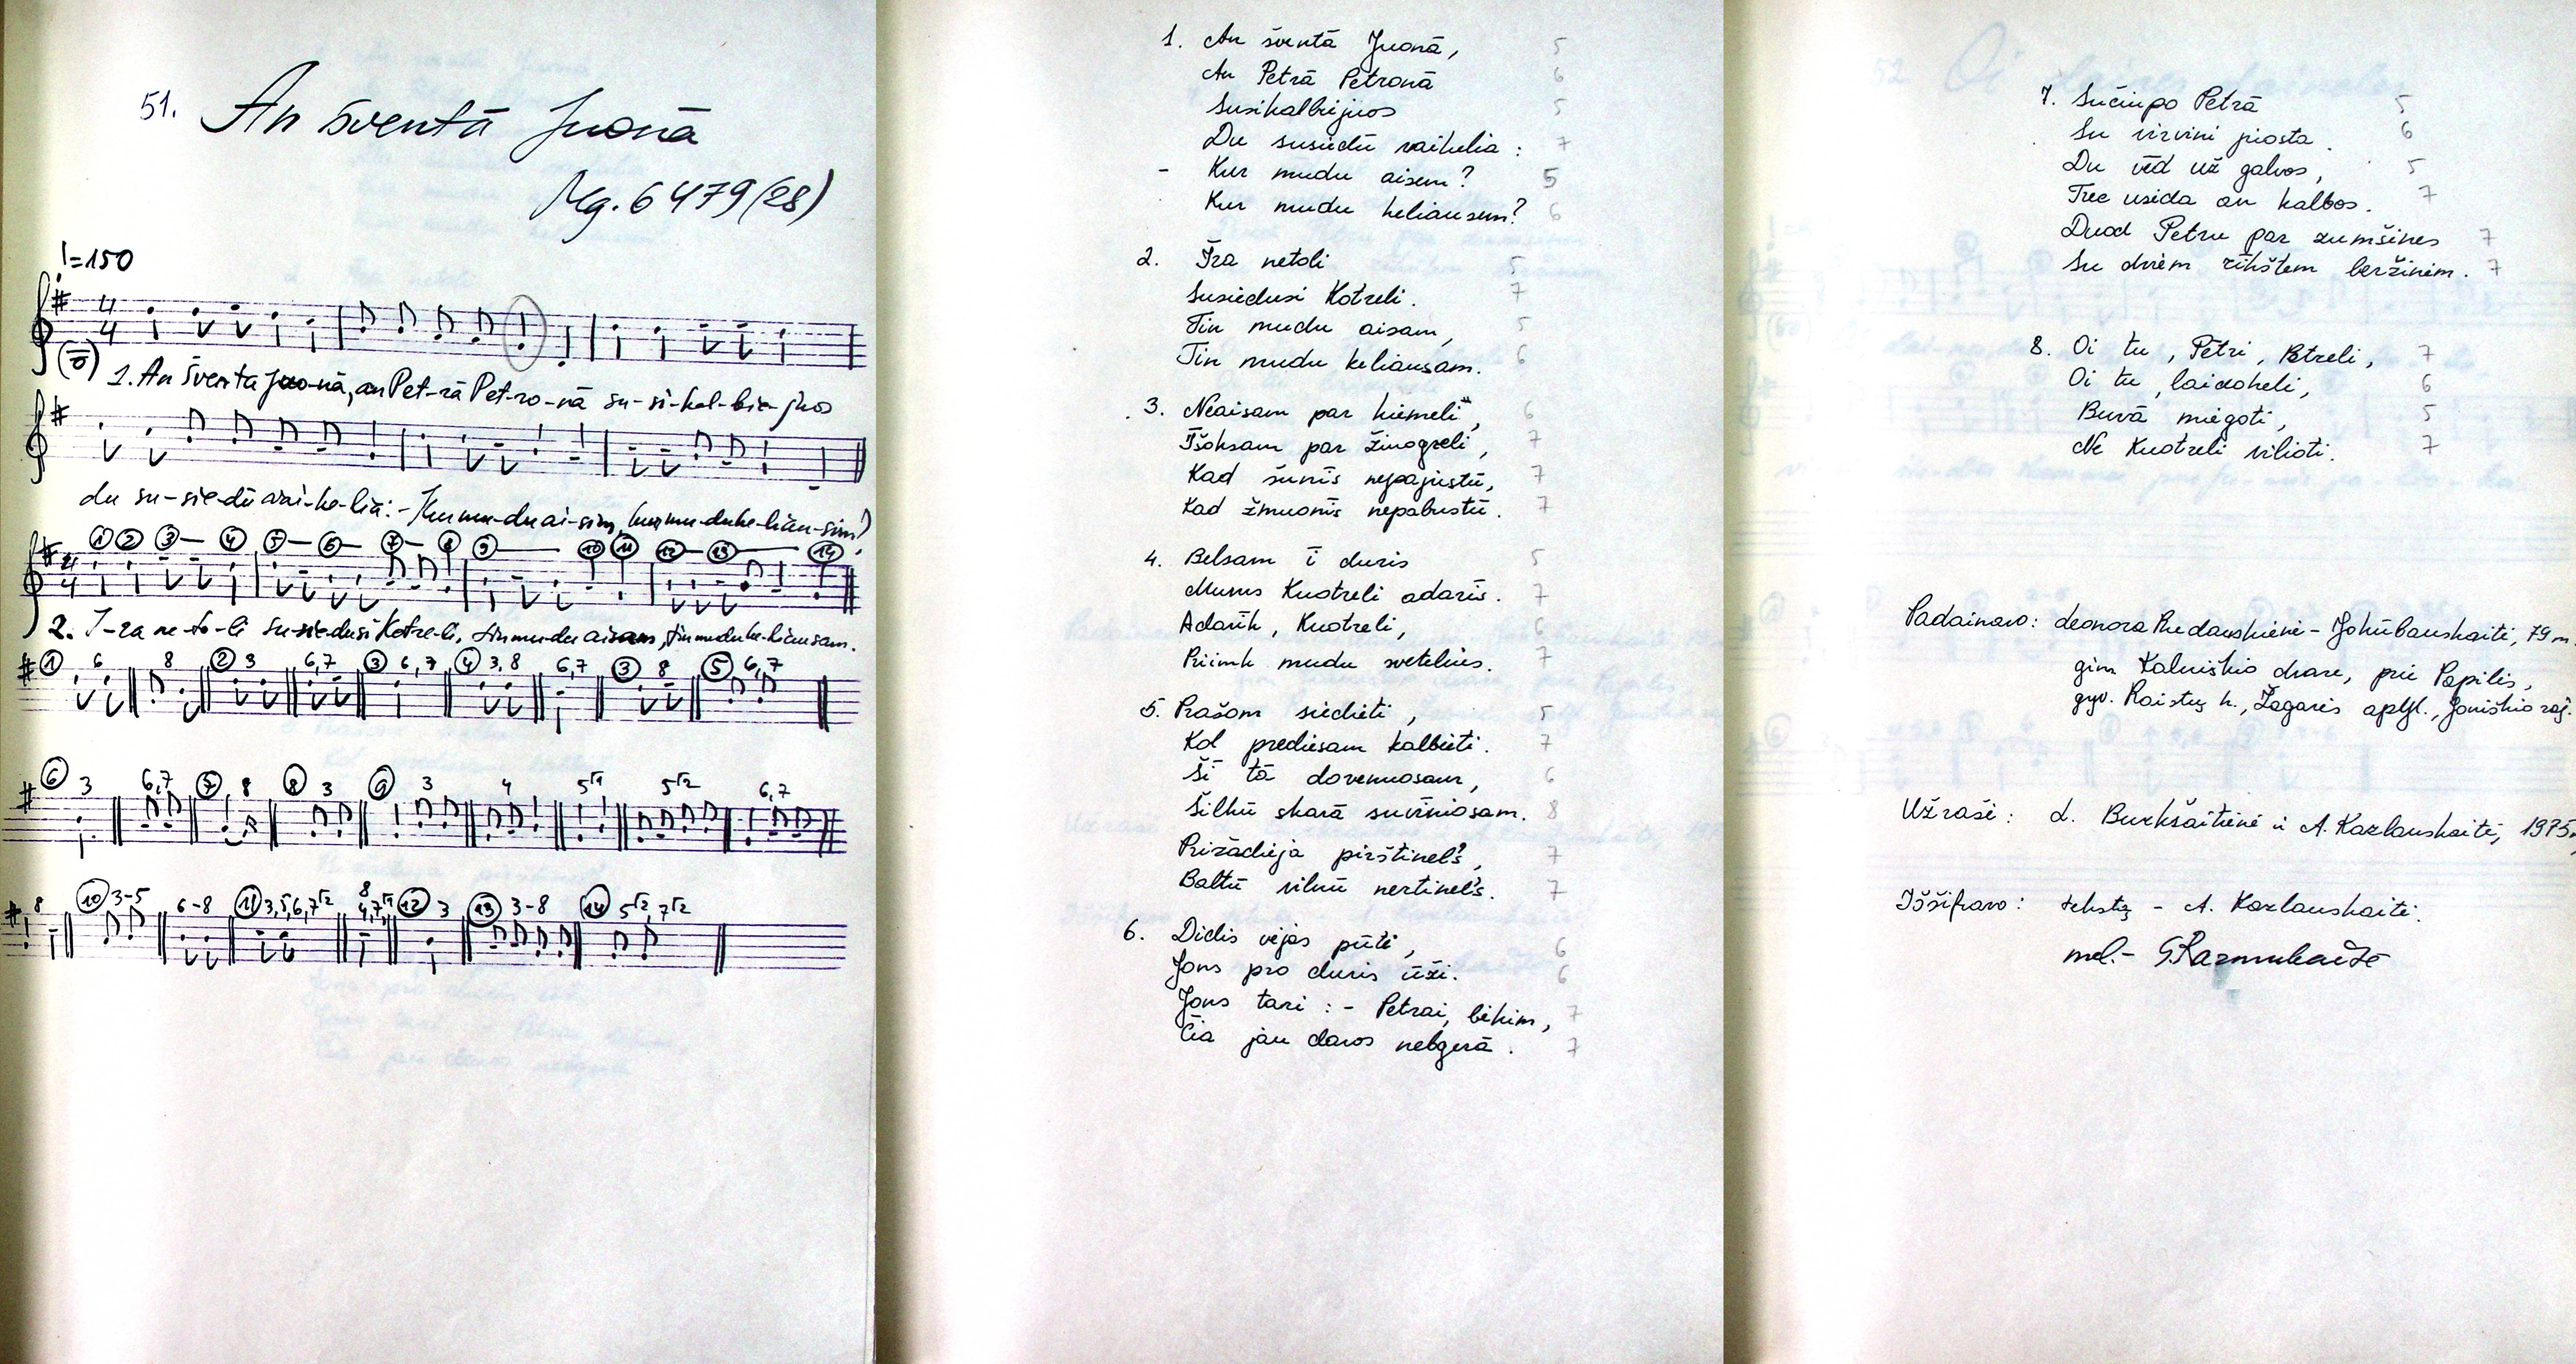 51. An šventā Juonā
Mg. 6479(28)
♩=150
4 4
(ō)
1. An šventa Juo-nā, an Pet-rā Pet-ro-nā su-si-kal-bie-juos
du su-sie-dū vai-ke-lia: - Kur mu-du ai-sim, kur mu-du ke-liau-sim?
① ② ③ ④ ⑤ ⑥ ⑦ ⑧ ⑨ ⑩ ⑪ ⑫ ⑬ ⑭
2 4
2. I-ra ne-to-li su-siedusi Kotre-li, tin mu-du aisam, tin mudu ke-liausam.
① 6 8 ② 3 6,7 ③ 6,7 ④ 3,8 6,7 ③ 8 ⑤ 6,7
⑥ 3 6,7 ⑦ 8 ⑧ 3 ⑨ 3 4 5⌈1 5⌈2 6,7
8 ⑩ 3-5 6-8 ⑪ 3,5,6,7⌈2 8 4,7⌈1 ⑫ 3 ⑬ 3-8 ⑭ 5⌈2, 7⌈2
1. An šventā Juonā, 5
An Petrā Petronā 6
Susikalbiejuos 5
Du susiedū vaikelia: 7
- Kur mudu aisem? 5
Kur mudu keliausem? 6
2. Īra netoli 5
Susiedusi Kotreli. 7
Tin mudu aisam, 5
Tin mudu keliausam. 6
3. Neaisam par kiemeli, 6
Īšoksam par žinogreli, 7
Kad šunīs nepajustū, 7
Kad žmuonīs nepabustū. 7
4. Belsam ī duris 5
Mums Kuotreli adarīs. 7
Adarīk, Kuotreli, 6
Priimk mudu svetelius. 7
5. Prašom siedieti, 5
Kol prediesam kalbieti. 7
Šī tā dovenuosam, 6
Šilkū skarā suvīniosam. 8
Prizadieja pirštinel's, 7
Baltū vilnū nertinel's. 7
6. Didis viejas pūti, 6
Jons pro duris ūži. 6
Jons tari: - Petrai, bikim, 7
Čia jau daros nebgerā. 7
7. Sučiupo Petrā 5
Su virvini piosta. 6
Du vēd už galvos, 5
Trec useda an kalbos. 7
Duod Petru par zumšines 7
Su dviem rīkštem beržiniem. 7
8. Oi tu, Petri, Petreli, 7
Oi tu, laidokeli, 6
Buvā miegoti, 5
Ne Kuotreli vilioti. 7
Padainavo: Leonora Rudauskienė - Jokūbauskaitė, 79 m.
gim. Kalniškio dvare, prie Papilės,
gyv. Raistų k., Žagarės apyl., Joniškio raj.
Užrašė: L. Burkšaitienė ir A. Kazlauskaitė, 1975
Iššifravo: tekstą - A. Kazlauskaitė.
mel. - G. Razmukaitė